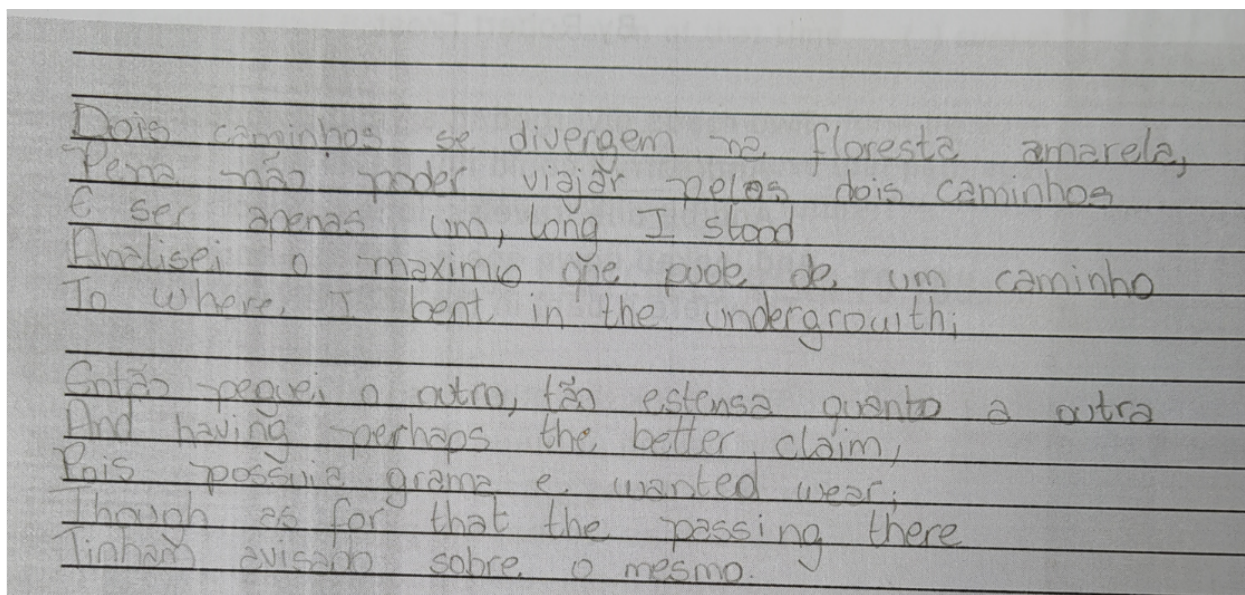 Dois caminhos se divergem na floresta amarela,
Pena não poder viajar pelos dois caminhos
E ser apenas um, long I stood
Analisei o maximo que pude de um caminho
To where I bent in the undergrowth;
Então peguei o outro, tão estensa quanto a outra
And having perhaps the better claim,
Pois possuia grama e wanted wear;
Though as for that the passing there
Tinham avisado sobre o mesmo.